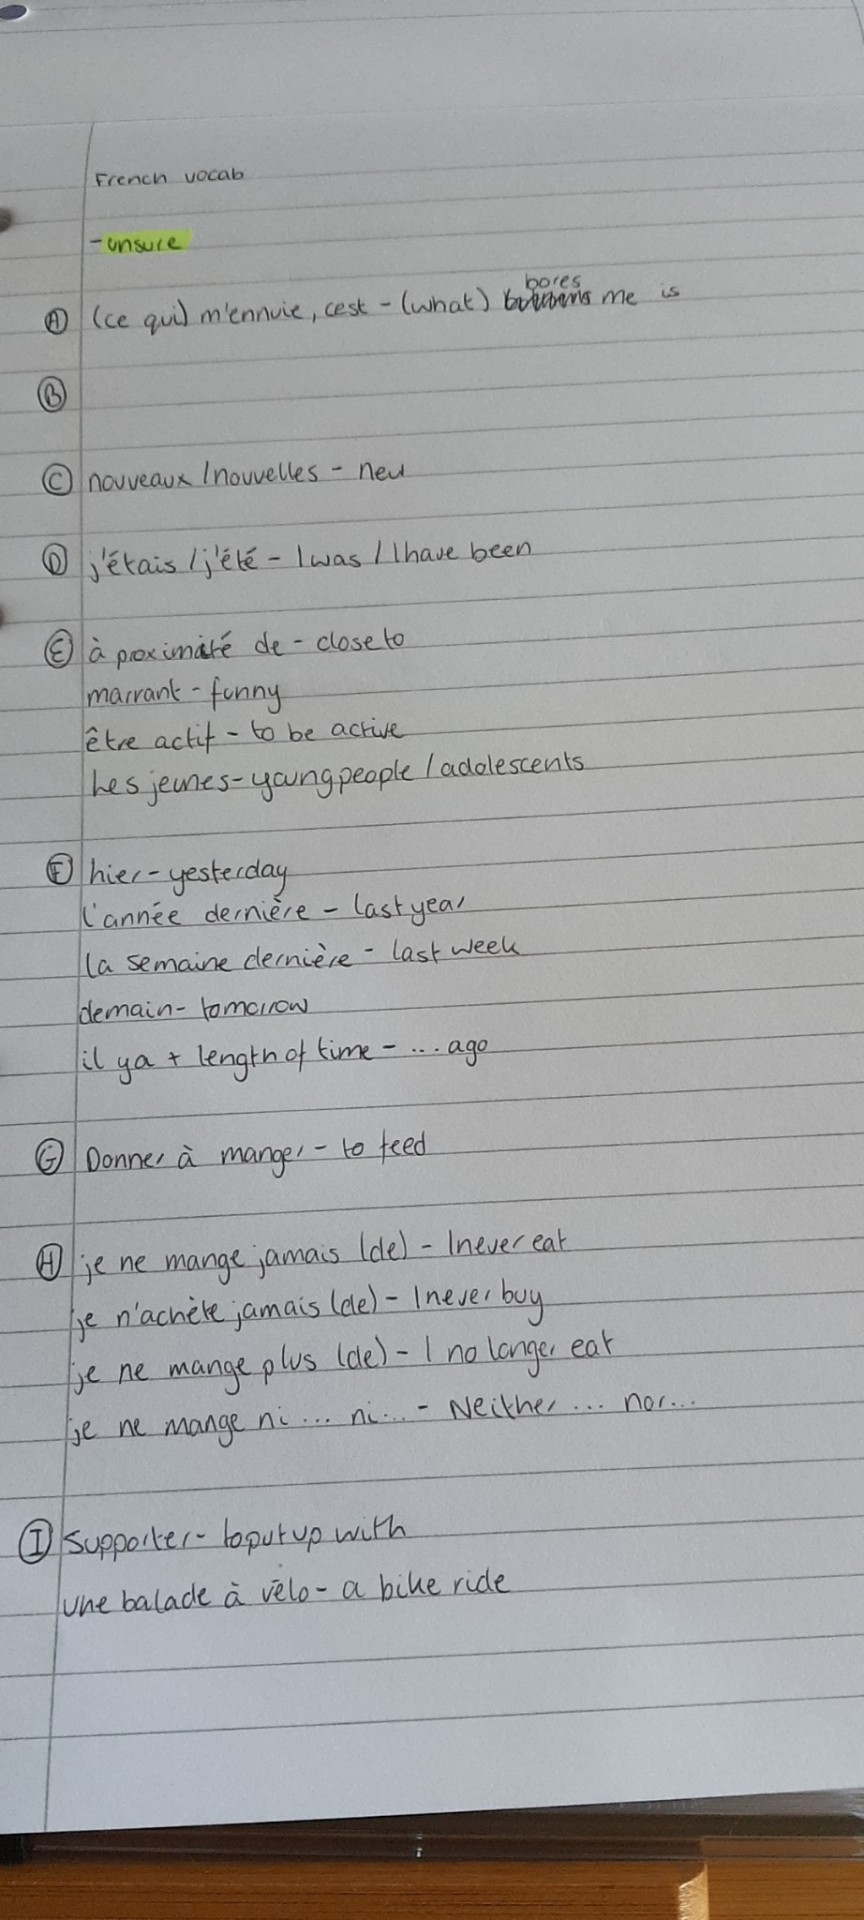 French vocab
- unsure
Ⓐ (ce qui) m'ennuie, cest - (what) bores me is
Ⓑ
Ⓒ nouveaux / nouvelles - new
Ⓓ j'étais / j'été - I was / I have been
Ⓔ à proximité de - close to
marrant - funny
être actif - to be active
Les jeunes - young people / adolescents
Ⓕ hier - yesterday
l'année dernière - last year
la semaine dernière - last week
demain - tomorrow
il ya + length of time - ... ago
Ⓖ Donner à manger - to feed
Ⓗ je ne mange jamais (de) - I never eat
je n'achète jamais (de) - I never buy
je ne mange plus (de) - I no longer eat
je ne mange ni ... ni... - Neither ... nor...
Ⓘ Supporter - to put up with
une balade à vélo - a bike ride